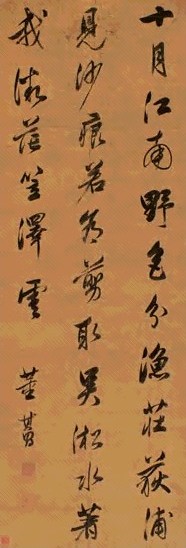 十月江南野色分漁莊荻浦
見沙痕若為剪取吳淞水著
我微茫笠澤雲 董其昌